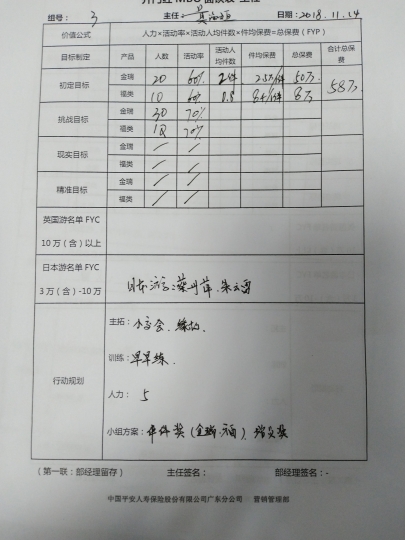 组号： 3 主任： 日期：2018.11.14
价值公式 人力×活动率×活动人均件数×件均保费=总保费（FYP）
目标制定 产品 人数 活动率 活动人均件数 件均保费 总保费 合计总保费
初定目标 金瑞 20 60% 2件 50万 58万
福类 10 60% 0.8 8万
挑战目标 金瑞 30 70%
福类 18 70%
现实目标 金瑞 / /
福类 / /
精准目标 金瑞 / /
福类 / /
英国游名单 FYC
10万（含）以上
日本游名单 FYC
3万（含）-10万
日本游：蔡
行动规划
主拓：小交会.
训练：早早练.
人力： 5
小组方案：件件奖（金瑞.福）、增员奖
（第一联：部经理留存） 主任签名： 部经理签名：-
中国平安人寿保险股份有限公司广东分公司 营销管理部